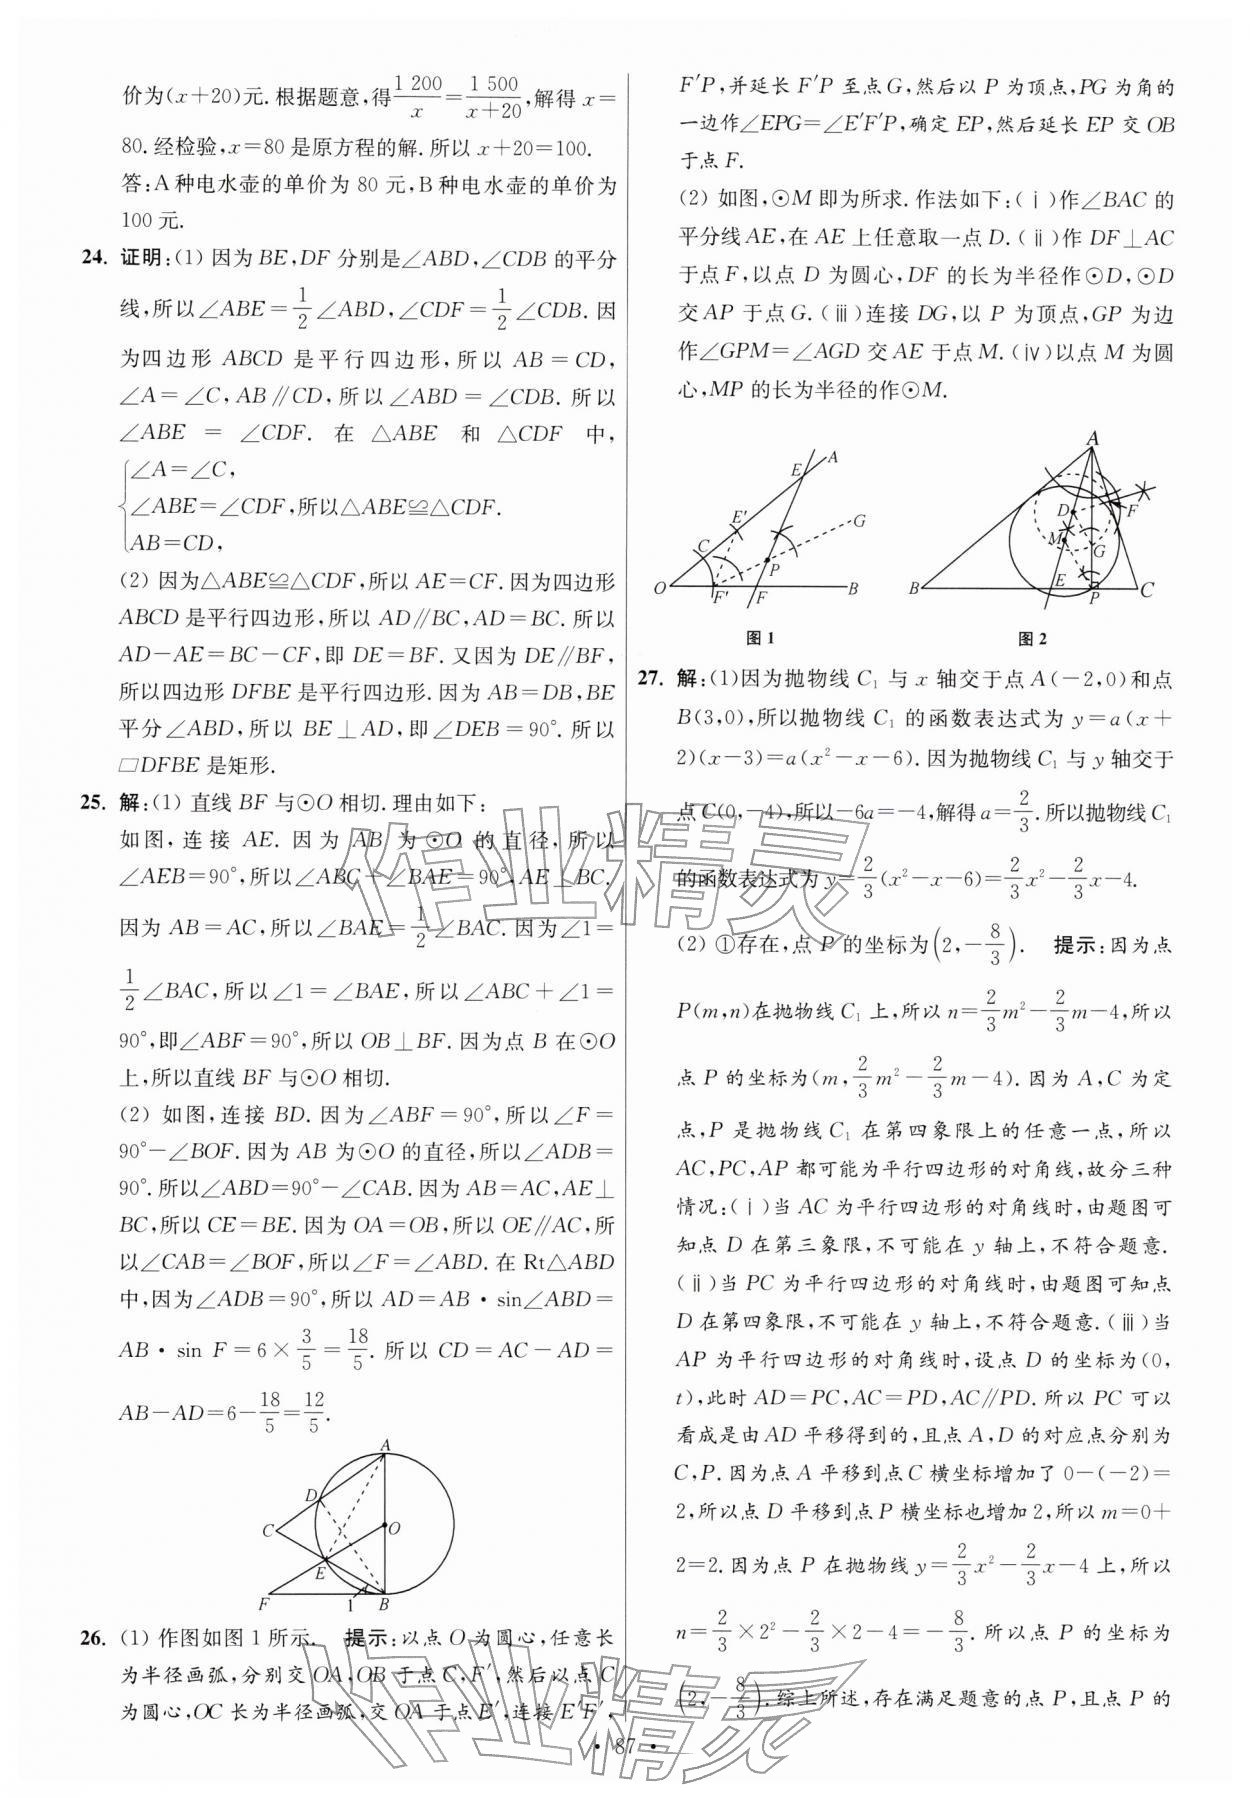 价为(x+20)元.根据题意,得1 200/x=1 500/(x+20),解得 x=
80.经检验,x=80 是原方程的解.所以 x+20=100.
答:A 种电水壶的单价为 80 元,B 种电水壶的单价为
100 元.
24. 证明:(1) 因为 BE,DF 分别是∠ABD,∠CDB 的平分
线,所以∠ABE=1/2∠ABD,∠CDF=1/2∠CDB.因
为四边形 ABCD 是平行四边形,所以 AB=CD,
∠A=∠C,AB∥CD,所以∠ABD=∠CDB.所以
∠ABE = ∠CDF. 在 △ABE 和 △CDF 中,
{∠A=∠C,
∠ABE=∠CDF,所以△ABE≌△CDF.
AB=CD,
(2) 因为△ABE≌△CDF,所以 AE=CF.因为四边形
ABCD 是平行四边形,所以 AD∥BC,AD=BC.所以
AD-AE=BC-CF,即 DE=BF.又因为 DE∥BF,
所以四边形 DFBE 是平行四边形.因为 AB=DB,BE
平分∠ABD,所以 BE⊥AD,即∠DEB=90°.所以
□DFBE 是矩形.
25. 解:(1) 直线 BF 与⊙O 相切.理由如下:
如图,连接 AE.因为 AB 为⊙O 的直径,所以
∠AEB=90°,所以∠ABC+∠BAE=90°,AE⊥BC.
因为 AB=AC,所以∠BAE=1/2∠BAC.因为∠1=
1/2∠BAC,所以∠1=∠BAE,所以∠ABC+∠1=
90°,即∠ABF=90°,所以 OB⊥BF.因为点 B 在⊙O
上,所以直线 BF 与⊙O 相切.
(2) 如图,连接 BD.因为∠ABF=90°,所以∠F=
90°-∠BOF.因为 AB 为⊙O 的直径,所以∠ADB=
90°.所以∠ABD=90°-∠CAB.因为 AB=AC,AE⊥
BC,所以 CE=BE.因为 OA=OB,所以 OE∥AC,所
以∠CAB=∠BOF,所以∠F=∠ABD.在 Rt△ABD
中,因为∠ADB=90°,所以 AD=AB·sin∠ABD=
AB·sin F=6×3/5=18/5.所以 CD=AC-AD=
AB-AD=6-18/5=12/5.
A
D
C
O
E
F
1
B
26. (1) 作图如图 1 所示. 提示:以点 O 为圆心,任意长
为半径画弧,分别交 OA,OB 于点 C,F′,然后以点 C
为圆心,OC 长为半径画弧,交 OA 于点 E′,连接 E′F′,
F′P,并延长 F′P 至点 G,然后以 P 为顶点,PG 为角的
一边作∠EPG=∠E′F′P,确定 EP,然后延长 EP 交 OB
于点 F.
(2) 如图,⊙M 即为所求.作法如下:(ⅰ)作∠BAC 的
平分线 AE,在 AE 上任意取一点 D.(ⅱ)作 DF⊥AC
于点 F,以点 D 为圆心,DF 的长为半径作⊙D,⊙D
交 AP 于点 G.(ⅲ)连接 DG,以 P 为顶点,GP 为边
作∠GPM=∠AGD 交 AE 于点 M.(ⅳ)以点 M 为圆
心,MP 的长为半径的作⊙M.
E A
E′
G
C
P
O F′ F B
图 1
A
D F
M G
B E P C
图 2
27. 解:(1)因为抛物线 C₁ 与 x 轴交于点 A(-2,0)和点
B(3,0),所以抛物线 C₁ 的函数表达式为 y=a(x+
2)(x-3)=a(x²-x-6).因为抛物线 C₁ 与 y 轴交于
点 C(0,-4),所以-6a=-4,解得 a=2/3.所以抛物线 C₁
的函数表达式为 y=2/3(x²-x-6)=2/3x²-2/3x-4.
(2) ①存在,点 P 的坐标为(2,-8/3). 提示:因为点
P(m,n)在抛物线 C₁ 上,所以 n=2/3m²-2/3m-4,所以
点 P 的坐标为(m,2/3m²-2/3m-4).因为 A,C 为定
点,P 是抛物线 C₁ 在第四象限上的任意一点,所以
AC,PC,AP 都可能为平行四边形的对角线,故分三种
情况:(ⅰ)当 AC 为平行四边形的对角线时,由题图可
知点 D 在第三象限,不可能在 y 轴上,不符合题意.
(ⅱ)当 PC 为平行四边形的对角线时,由题图可知点
D 在第四象限,不可能在 y 轴上,不符合题意.(ⅲ)当
AP 为平行四边形的对角线时,设点 D 的坐标为(0,
t),此时 AD=PC,AC=PD,AC∥PD.所以 PC 可以
看成是由 AD 平移得到的,且点 A,D 的对应点分别为
C,P.因为点 A 平移到点 C 横坐标增加了 0-(-2)=
2,所以点 D 平移到点 P 横坐标也增加 2,所以 m=0+
2=2.因为点 P 在抛物线 y=2/3x²-2/3x-4 上,所以
n=2/3×2²-2/3×2-4=-8/3.所以点 P 的坐标为
(2,-8/3).综上所述,存在满足题意的点 P,且点 P 的
作业精灵
作业精灵
• 87 •